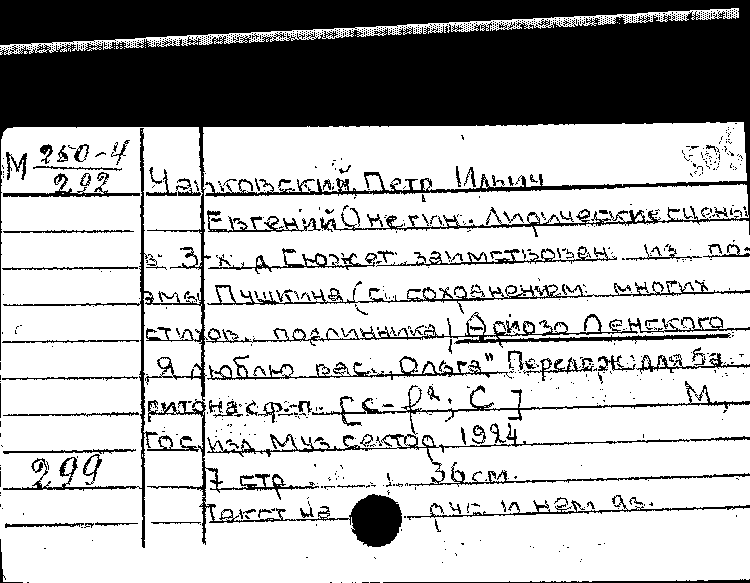 М 250-4
292
505
Чайковский, Петр Ильич
Евгений Онегин. Лирические сцены
в 3-х д. Сюжет заимствован из по-
эмы Пушкина (с сохранением многих
стихов подлинника) Ариозо Ленского
„Я люблю вас, Ольга". Перелож. для ба-
ритона с ф-п. [c-f²; C] М.,
Гос. изд., Муз. сектор, 1924.
299
7 стр. 36 см.
Текст на рус. и нем. яз.